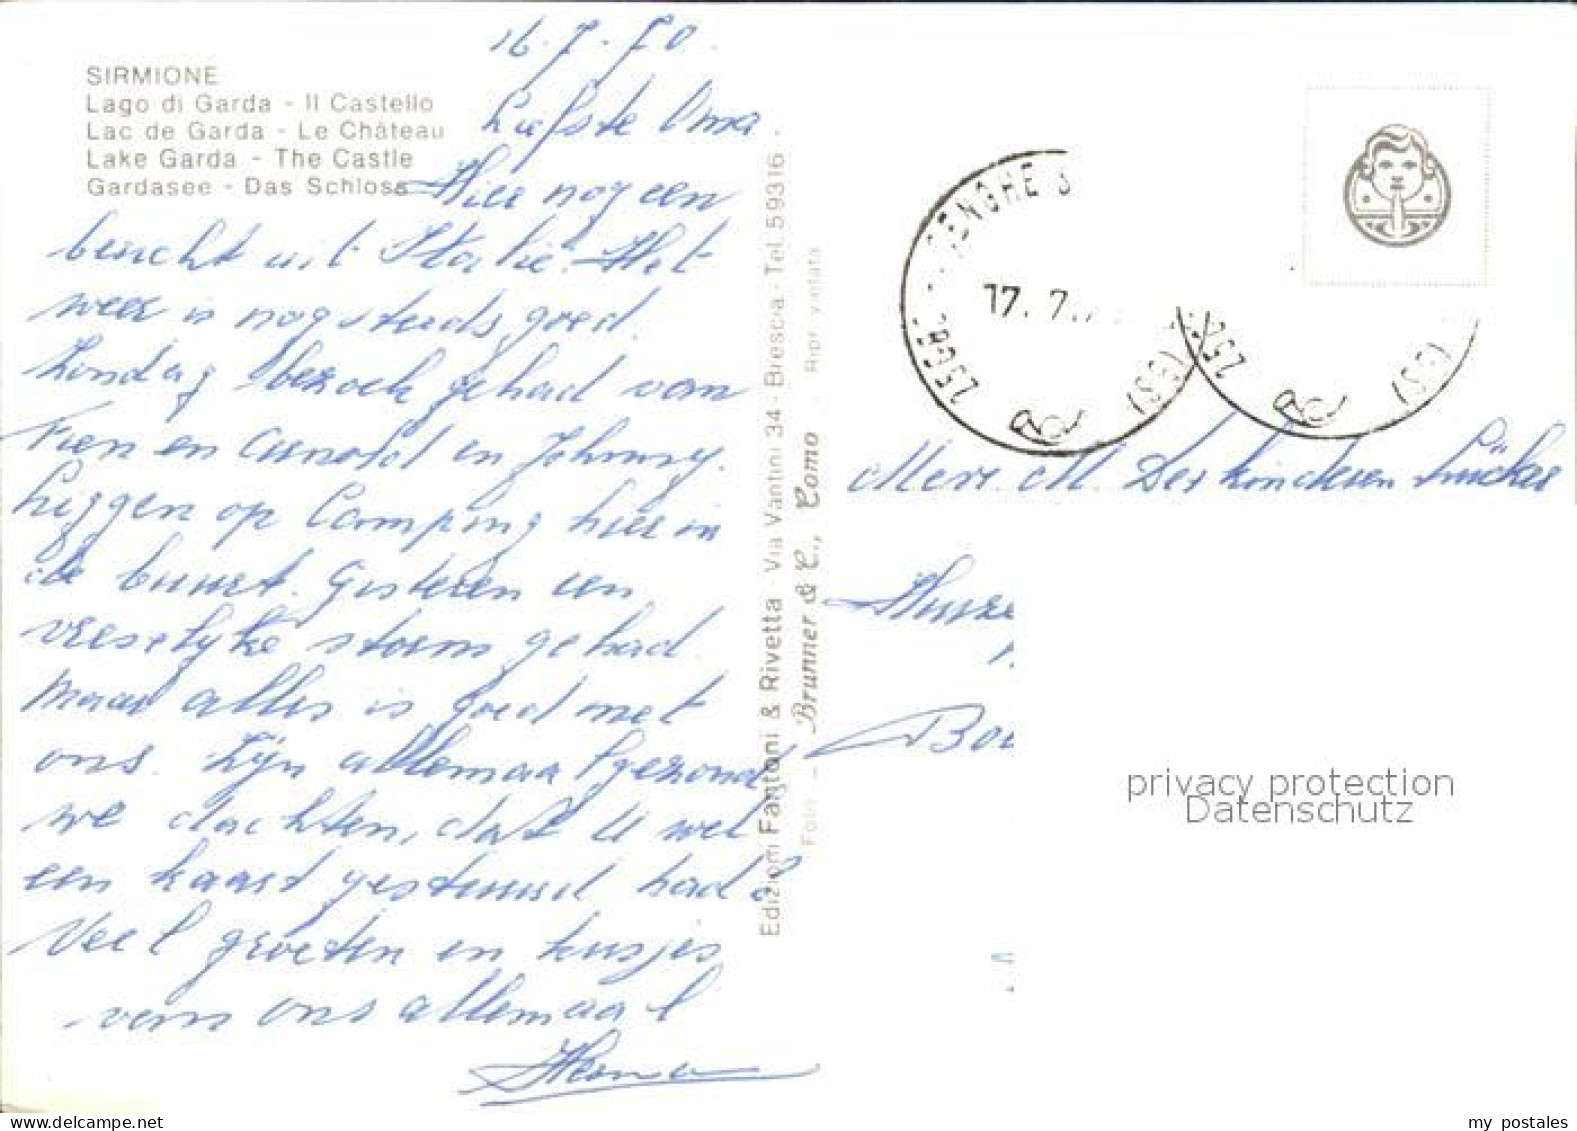 SIRMIONE
Lago di Garda - Il Castello
Lac de Garda - Le Château
Lake Garda - The Castle
Gardasee - Das Schloss
16.7.70.
Liefste Oma.
Hier nog een
bericht uit Italië. Het
weer is nog steeds goed.
Zondag bezoek gehad van
Fien en Arnold en Johnny.
Liggen op Camping hier in
de buurt. Gisteren een
vreselyke storm gehad.
Maar alles is goed met
ons. Zijn allemaal gezond,
we dachten, dat U wel
een kaart gestuurd had?
Veel groeten en kusjes
van ons allemaal
Edizioni Fantoni & Rivetta - Via Vantini 34 - Brescia - Tel. 59316
Foto - Brunner & C., Como - Ripr. vietata
17.7.
(BS)
(BS)
Mevr. M. Der kinderen
privacy protection
Datenschutz
my postales